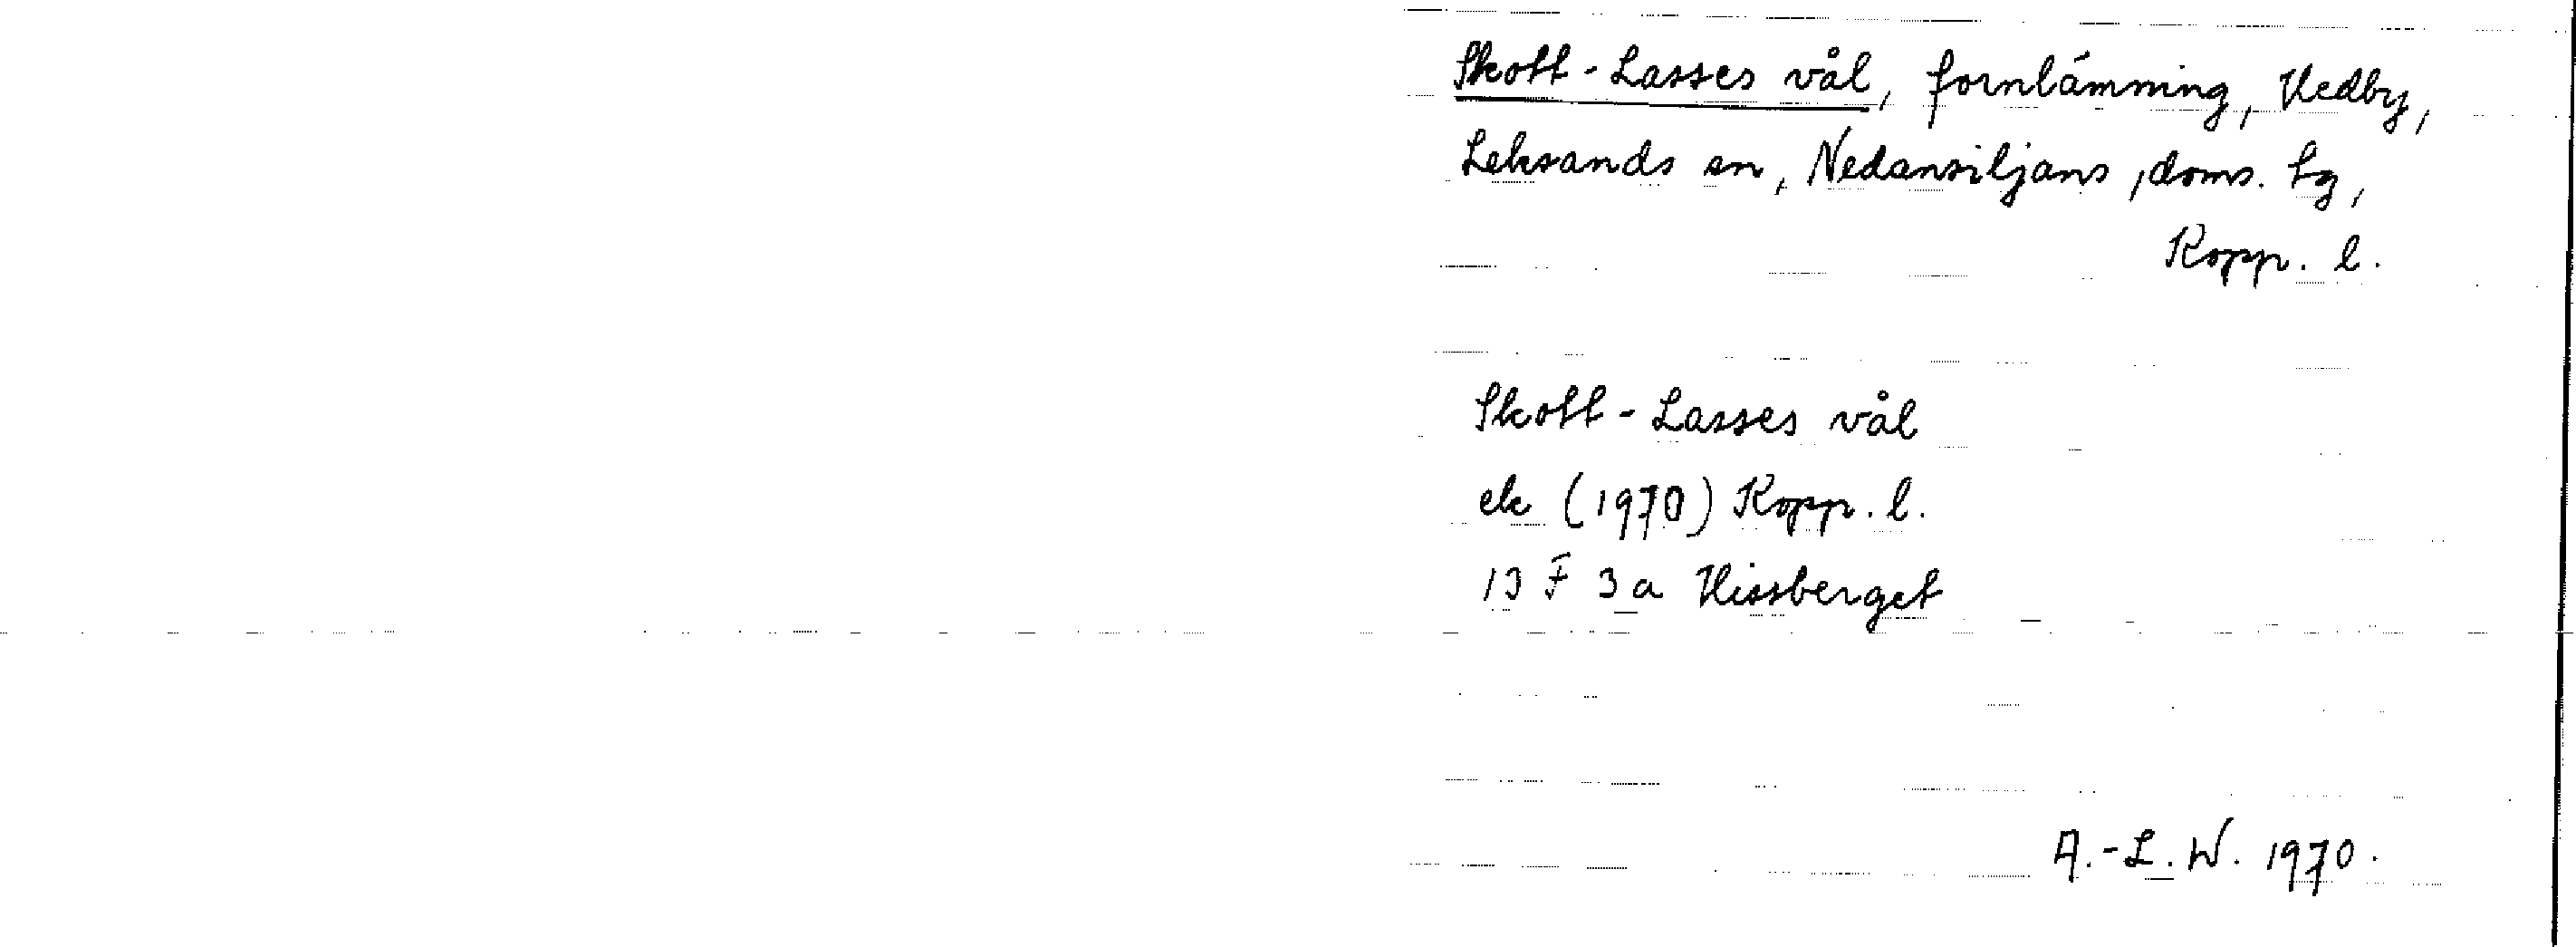 Skott-Lasses vål, fornlämning, Hedby,
Leksands sn, Nedansiljans, doms. tg,
Kopp. l.
Skott-Lasses vål
ek (1970) Kopp. l.
13 F 3a Hissberget
A.-L. W. 1970.